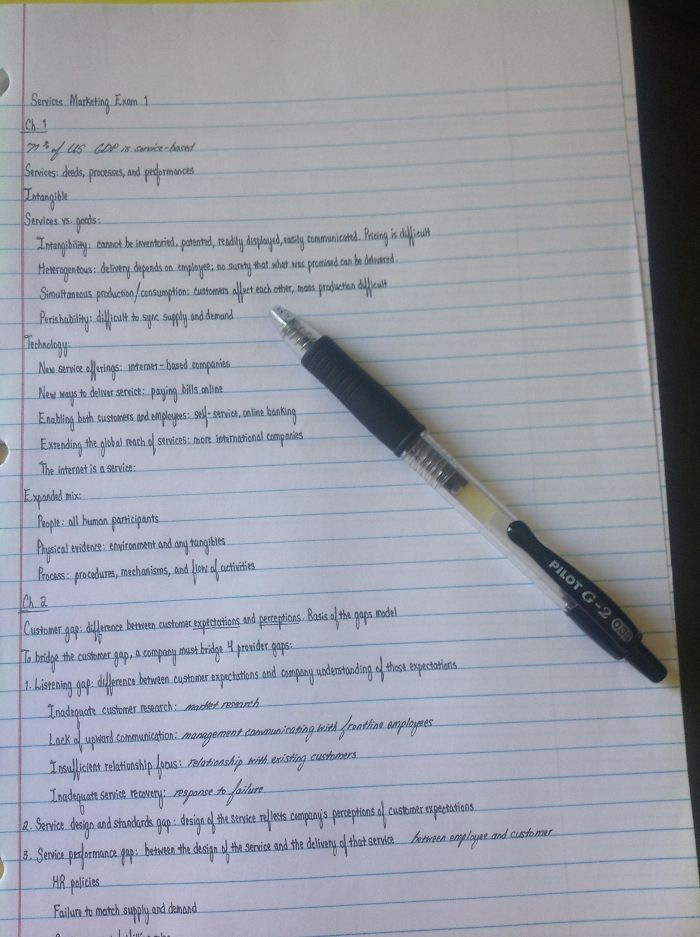 Services Marketing Exam 1
Ch. 1
of US GDP is service-based
Services: deeds, processes, and performances
Intangible
Services vs. goods:
Intangibility: cannot be inventoried, patented, readily displayed, easily communicated. Pricing is difficult
Heterogeneous: delivery depends on employee; no surety that what was promised can be delivered
Simultaneous production/consumption: customers affect each other, mass production difficult
Perishability: difficult to sync supply and demand
Technology:
New service offerings: internet-based companies
New ways to deliver service: paying bills online
Enabling both customers and employees: self-service, online banking
Extending the global reach of services: more international companies
The internet is a service:
Expanded mix:
People: all human participants
Physical evidence: environment and any tangibles
Process: procedures, mechanisms, and flow of activities
PILOT G-2
Ch. 2
Customer gap: difference between customer expectations and perceptions. Basis of the gaps model
To bridge the customer gap, a company must bridge 4 provider gaps:
1. Listening gap: difference between customer expectations and company understanding of those expectations
Inadequate customer research: market research
Lack of upward communication: management communicating with frontline employees
Insufficient relationship focus: relationship with existing customers
Inadequate service recovery: response to failure
2. Service design and standards gap: design of the service reflects company's perceptions of customer expectations
3. Service performance gap: between the design of the service and the delivery of that service between employee and customer
HR policies
Failure to match supply and demand